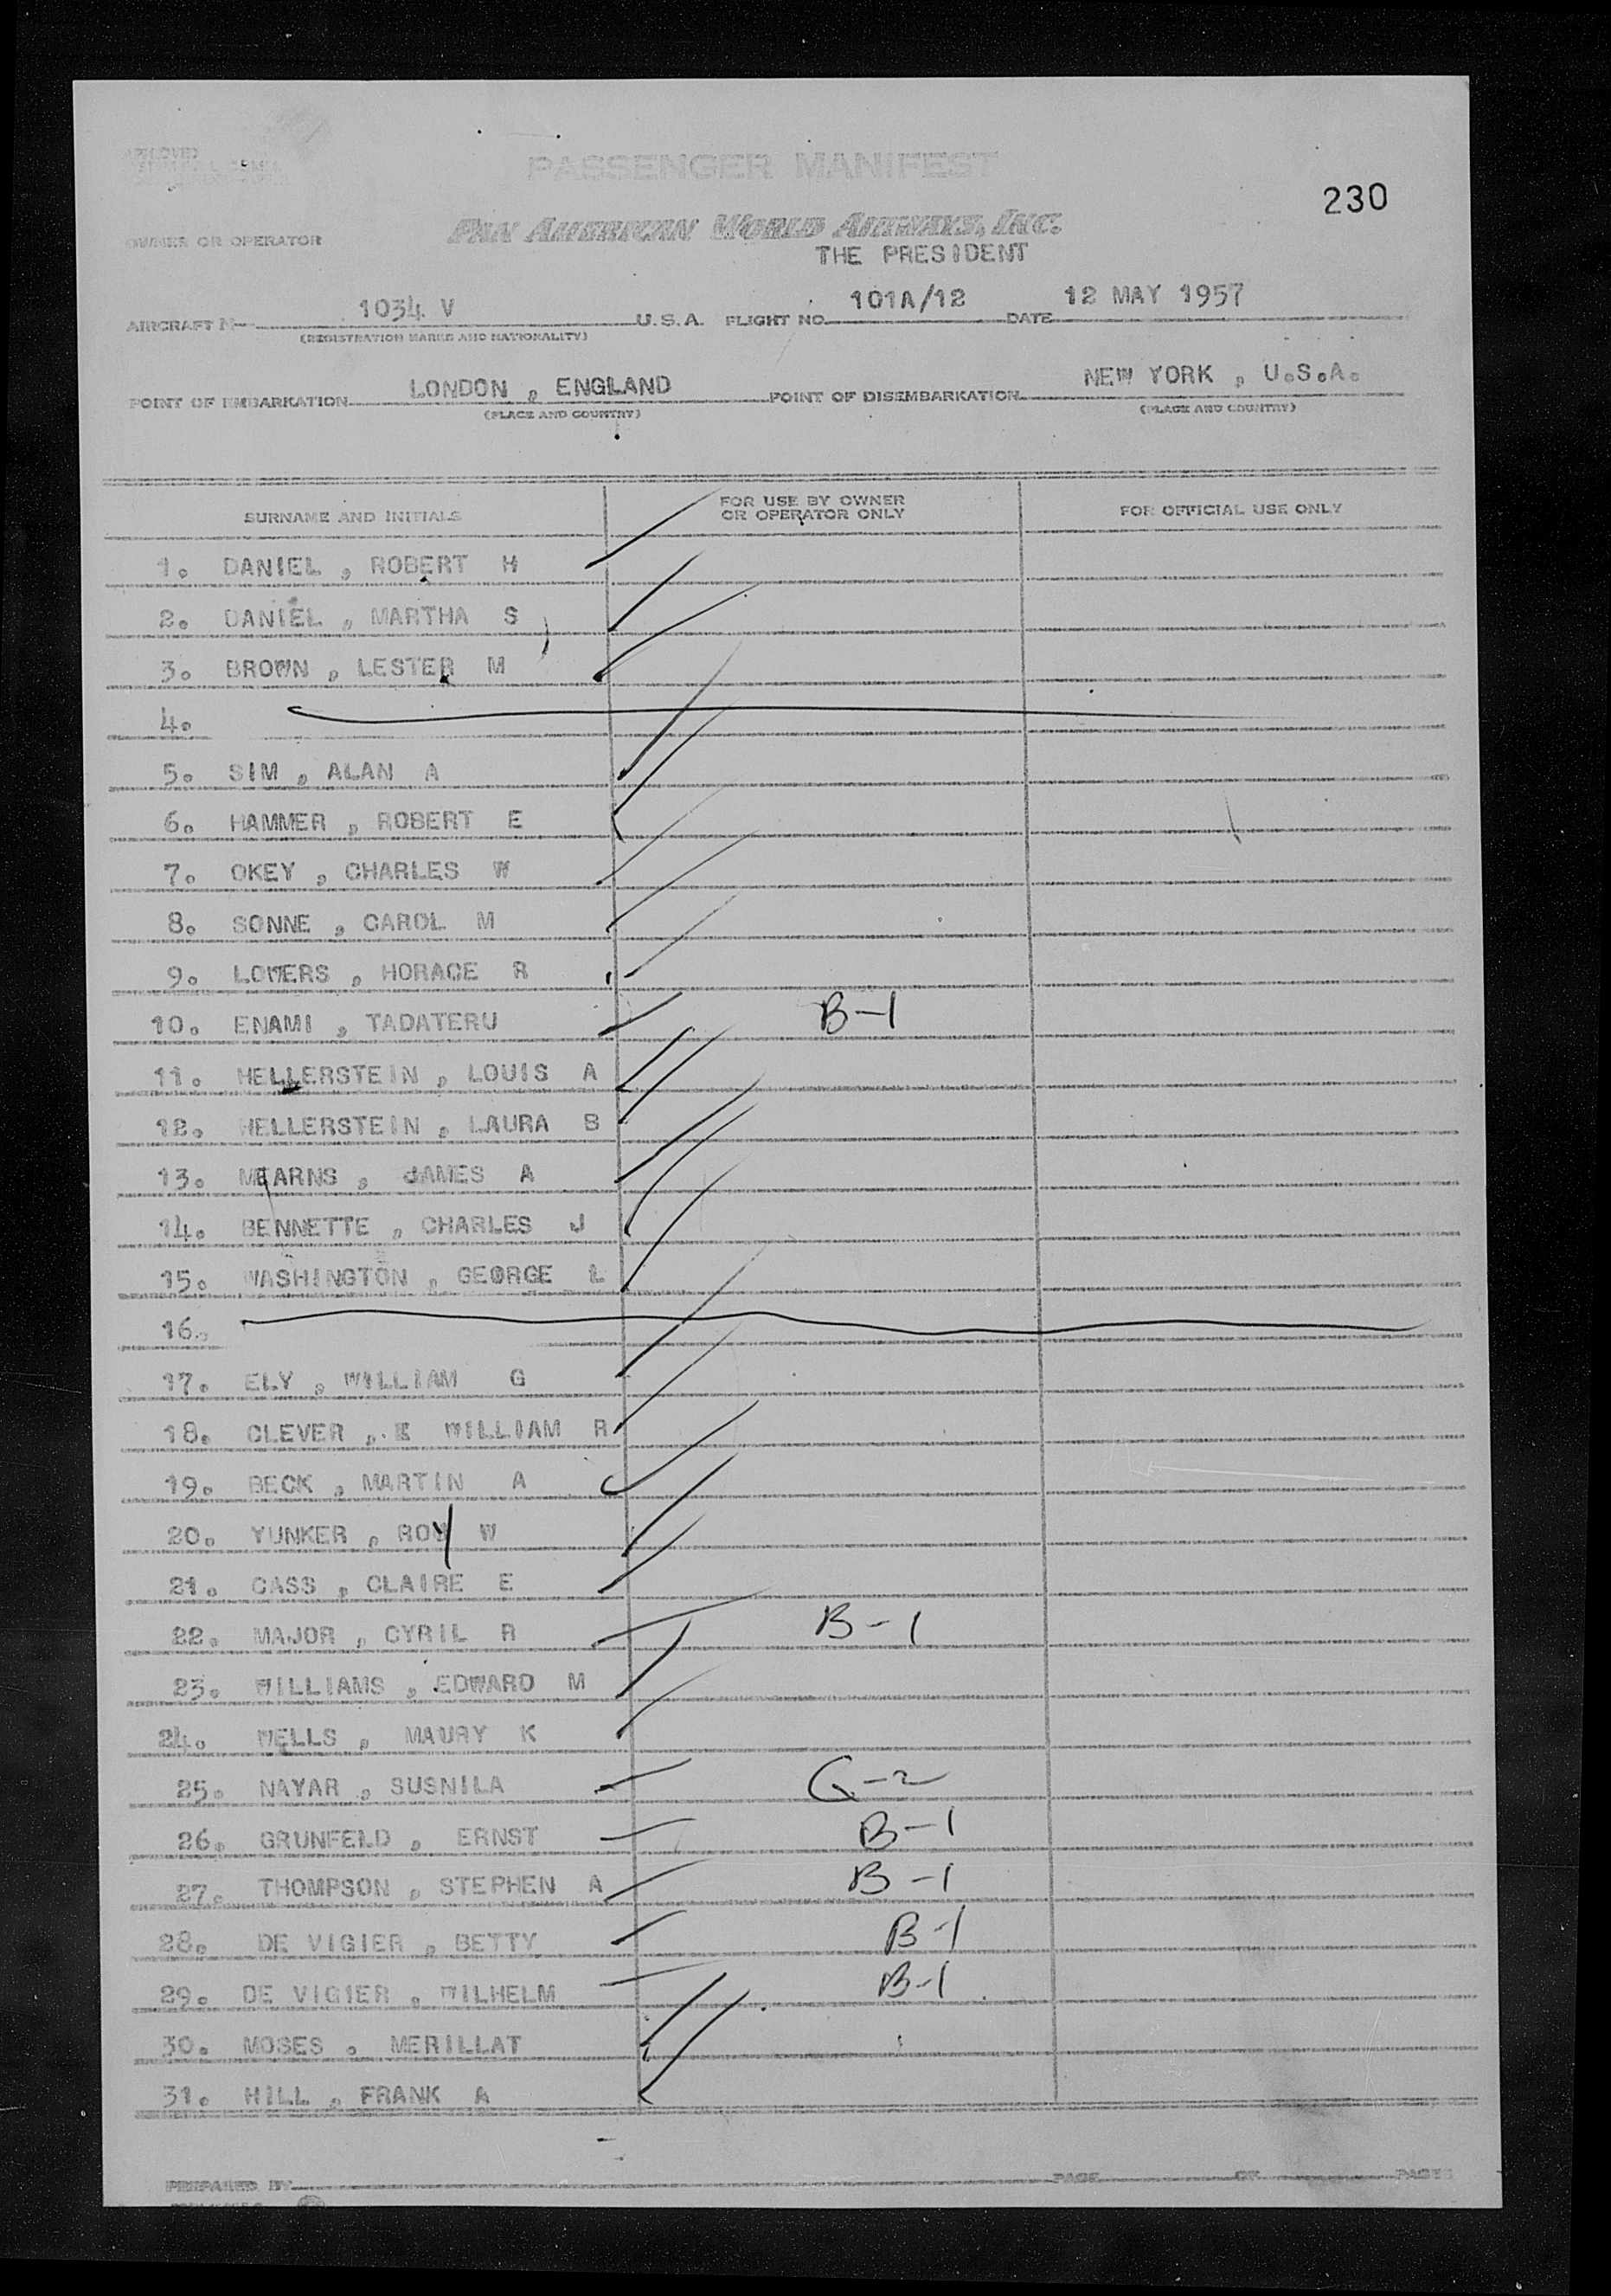 APPROVED
PASSENGER MANIFEST
230
OWNER OR OPERATOR PAN AMERICAN WORLD AIRWAYS, INC.
THE PRESIDENT
AIRCRAFT N 1034 V U.S.A. FLIGHT NO. 101A/12 DATE 12 MAY 1957
(REGISTRATION MARKS AND NATIONALITY)
POINT OF EMBARKATION LONDON , ENGLAND POINT OF DISEMBARKATION NEW YORK , U.S.A.
(PLACE AND COUNTRY) (PLACE AND COUNTRY)
SURNAME AND INITIALS FOR USE BY OWNER OR OPERATOR ONLY FOR OFFICIAL USE ONLY
1. DANIEL , ROBERT H
2. DANIEL , MARTHA S
3. BROWN , LESTER M
4.
5. SIM , ALAN A
6. HAMMER , ROBERT E
7. OKEY , CHARLES W
8. SONNE , CAROL M
9. LOWERS , HORACE R
10. ENAMI , TADATERU B-1
11. HELLERSTEIN , LOUIS A
12. HELLERSTEIN , LAURA S
13. MEARNS , JAMES A
14. BENNETTE , CHARLES J
15. WASHINGTON , GEORGE L
16.
17. ELY , WILLIAM G
18. CLEVER , WILLIAM R
19. BECK , MARTIN A
20. YUNKER , ROY W
21. CASS , CLAIRE E
22. MAJOR , CYRIL R B-1
23. WILLIAMS , EDWARD M
24. WELLS , MAURY K
25. NAYAR , SUSNILA G-2
26. GRUNFELD , ERNST B-1
27. THOMPSON , STEPHEN A B-1
28. DE VIGIER , BETTY B-1
29. DE VIGIER , WILHELM B-1
30. MOSES , MERILLAT
31. HILL , FRANK A
PREPARED BY PAGE OF PAGES